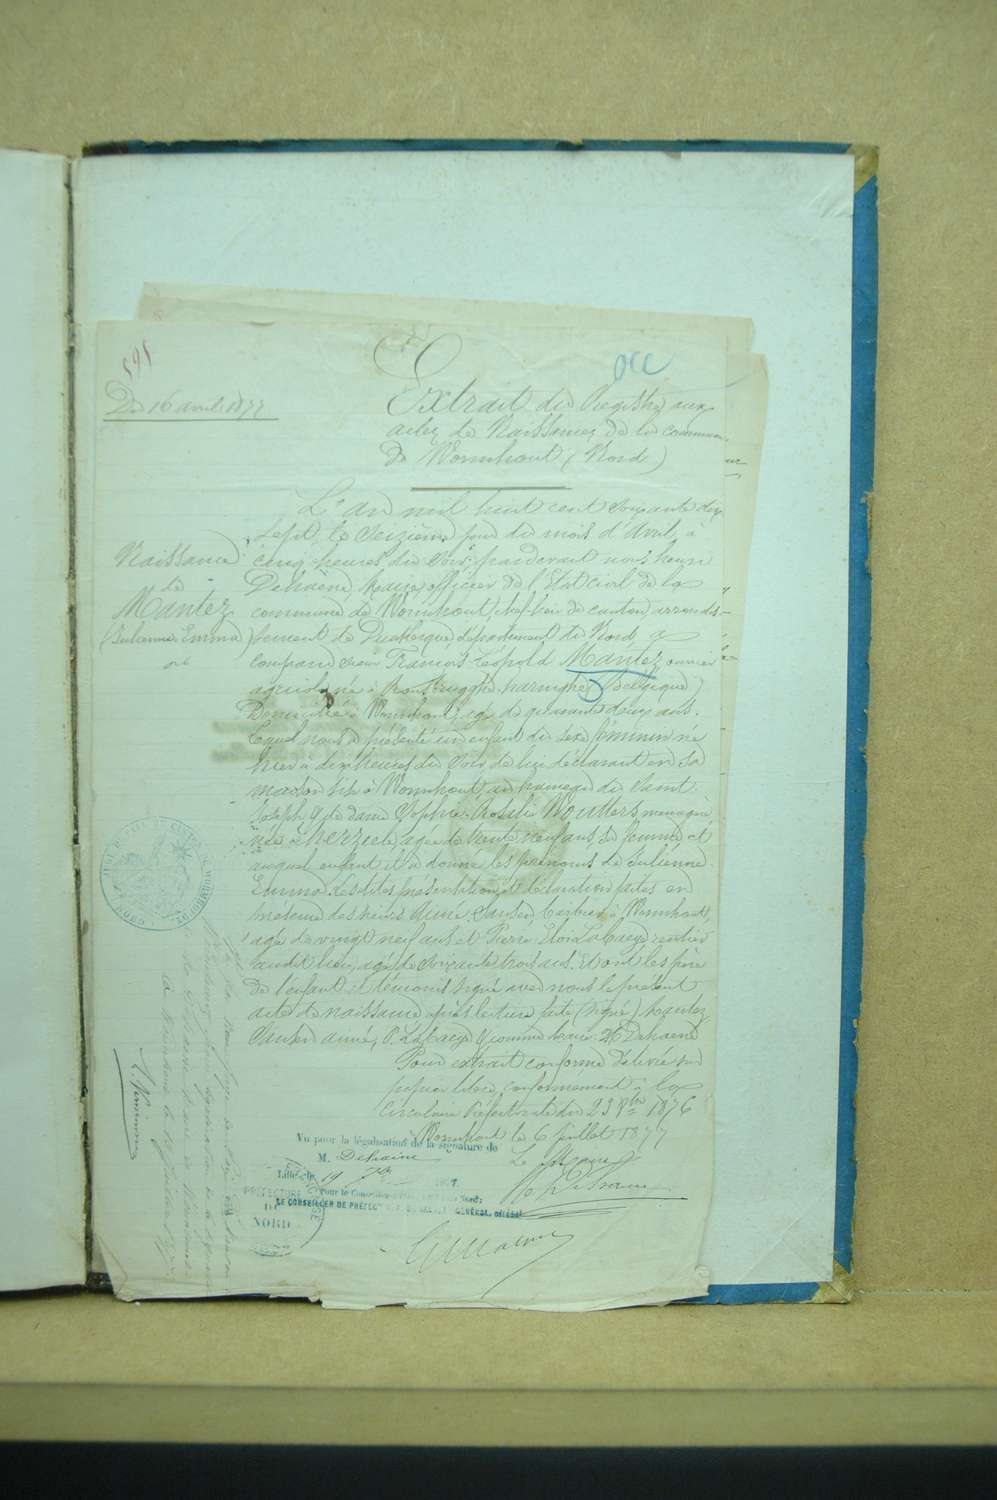 595
occ
Du 16 avril 1877
Extrait du Registre aux
actes de Naissances de la commune
de Wormhout (Nord)
L'an mil huit cent soixante dix
sept, le seizième jour du mois d'Avril, à
cinq heures du soir, pardevant nous henri
Dehaene, Maire, officier de l'Etat Civil de la
commune de Wormhout, chef-lieu de canton, arrondis-
sement de Dunkerque, département du Nord, a
comparu sieur François Léopold Mantez, ouvrier
agricole, né à Rousbrugghe-haringhe (Belgique)
Domicilié à Wormhout, agé de quarante deux ans.
Lequel nous a présenté un enfant du sexe féminin né
hier à dix heures du soir, de lui déclarant en sa
maison sise à Wormhout au hameau de Saint
Joseph & de dame Sophie Rosalie Wouters ménagère
née à herzeele, agée de trente neuf ans sa femme, et
auquel enfant il a donné les prénoms de Julienne
Emma. Lesdites présentation et déclaration faites en
présence des sieurs Aimé Vansen barbier à Wormhout,
agé de vingt neuf ans et Pierre Eloi Labaeye rentier
audit lieu, agé de soixante trois ans. Et ont les père
de l'enfant et témoins signé avec nous le présent
acte de naissance après lecture faite (signé) Mantez
Vansen aimé, P. Labaeye & comme maire H. Dehaene
Pour extrait conforme délivré sur
papier libre conformément à la
Circulaire Préfectorale du 23 8bre 1876
Wormhout le 6 juillet 1877
Le Maire
H. Dehaene
Naissance
de
Mantez
(Julienne Emma)
Vu pour la légalisation de la signature de
M. Dehaene
Lille, le 19 187
LE CONSEILLER DE PRÉFECTURE, SECRÉTAIRE GÉNÉRAL DÉLÉGUÉ
PRÉFECTURE
DU
NORD